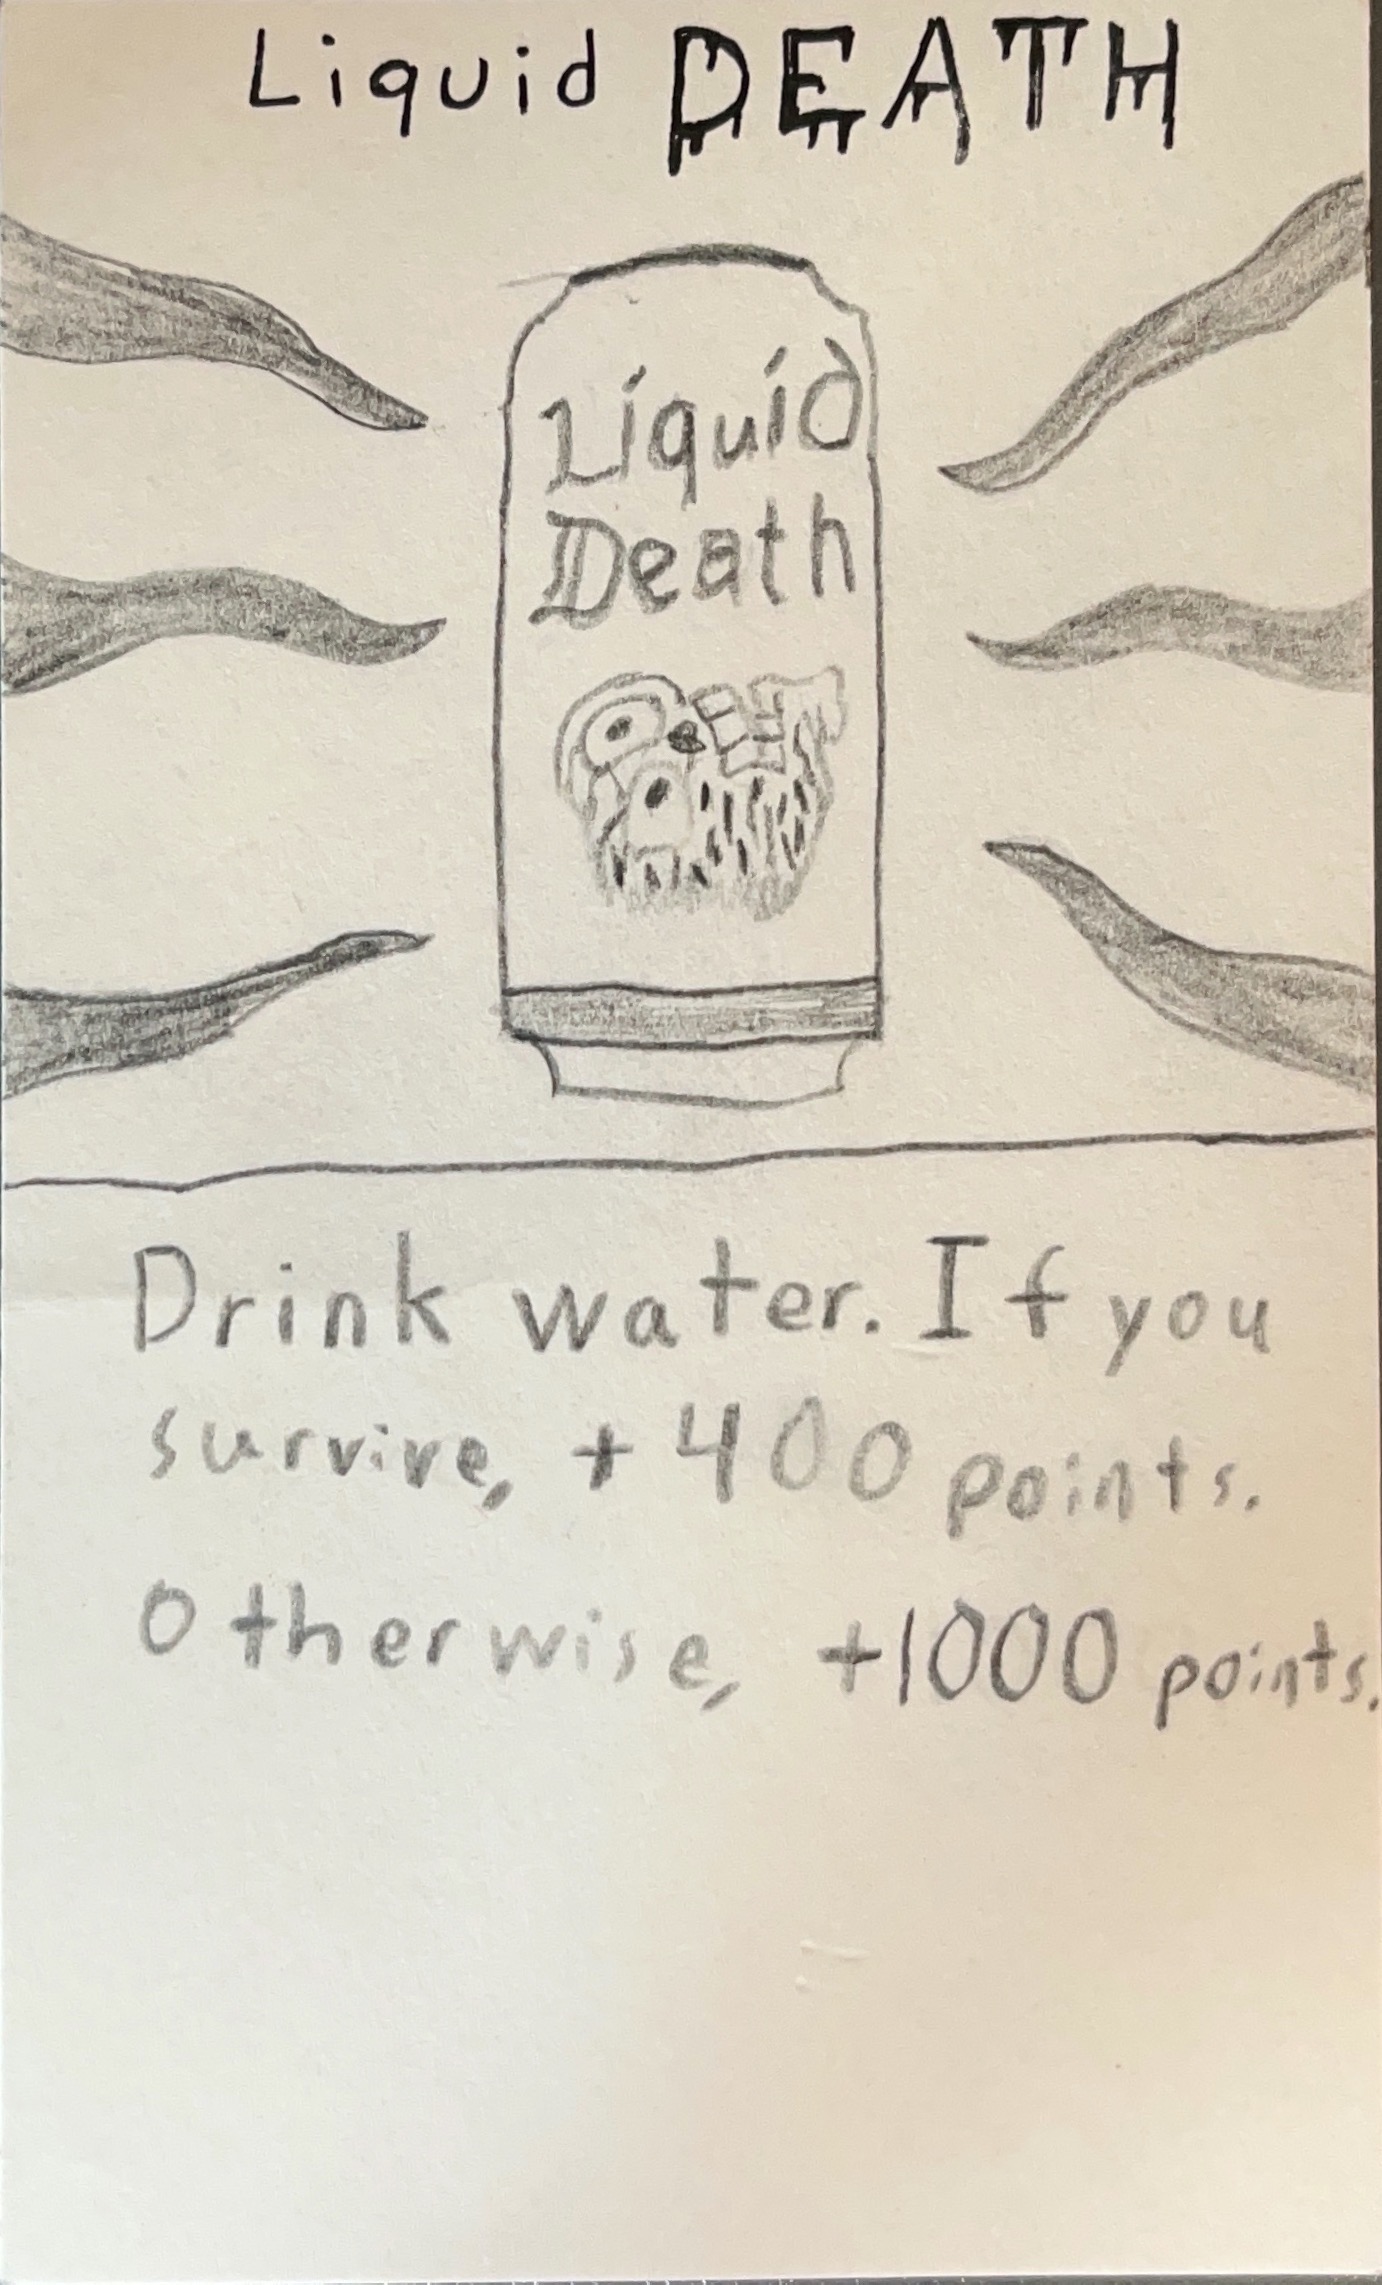 Liquid DEATH
Liquid
Death
Drink water. If you
survive, + 400 points.
Otherwise, +1000 points.